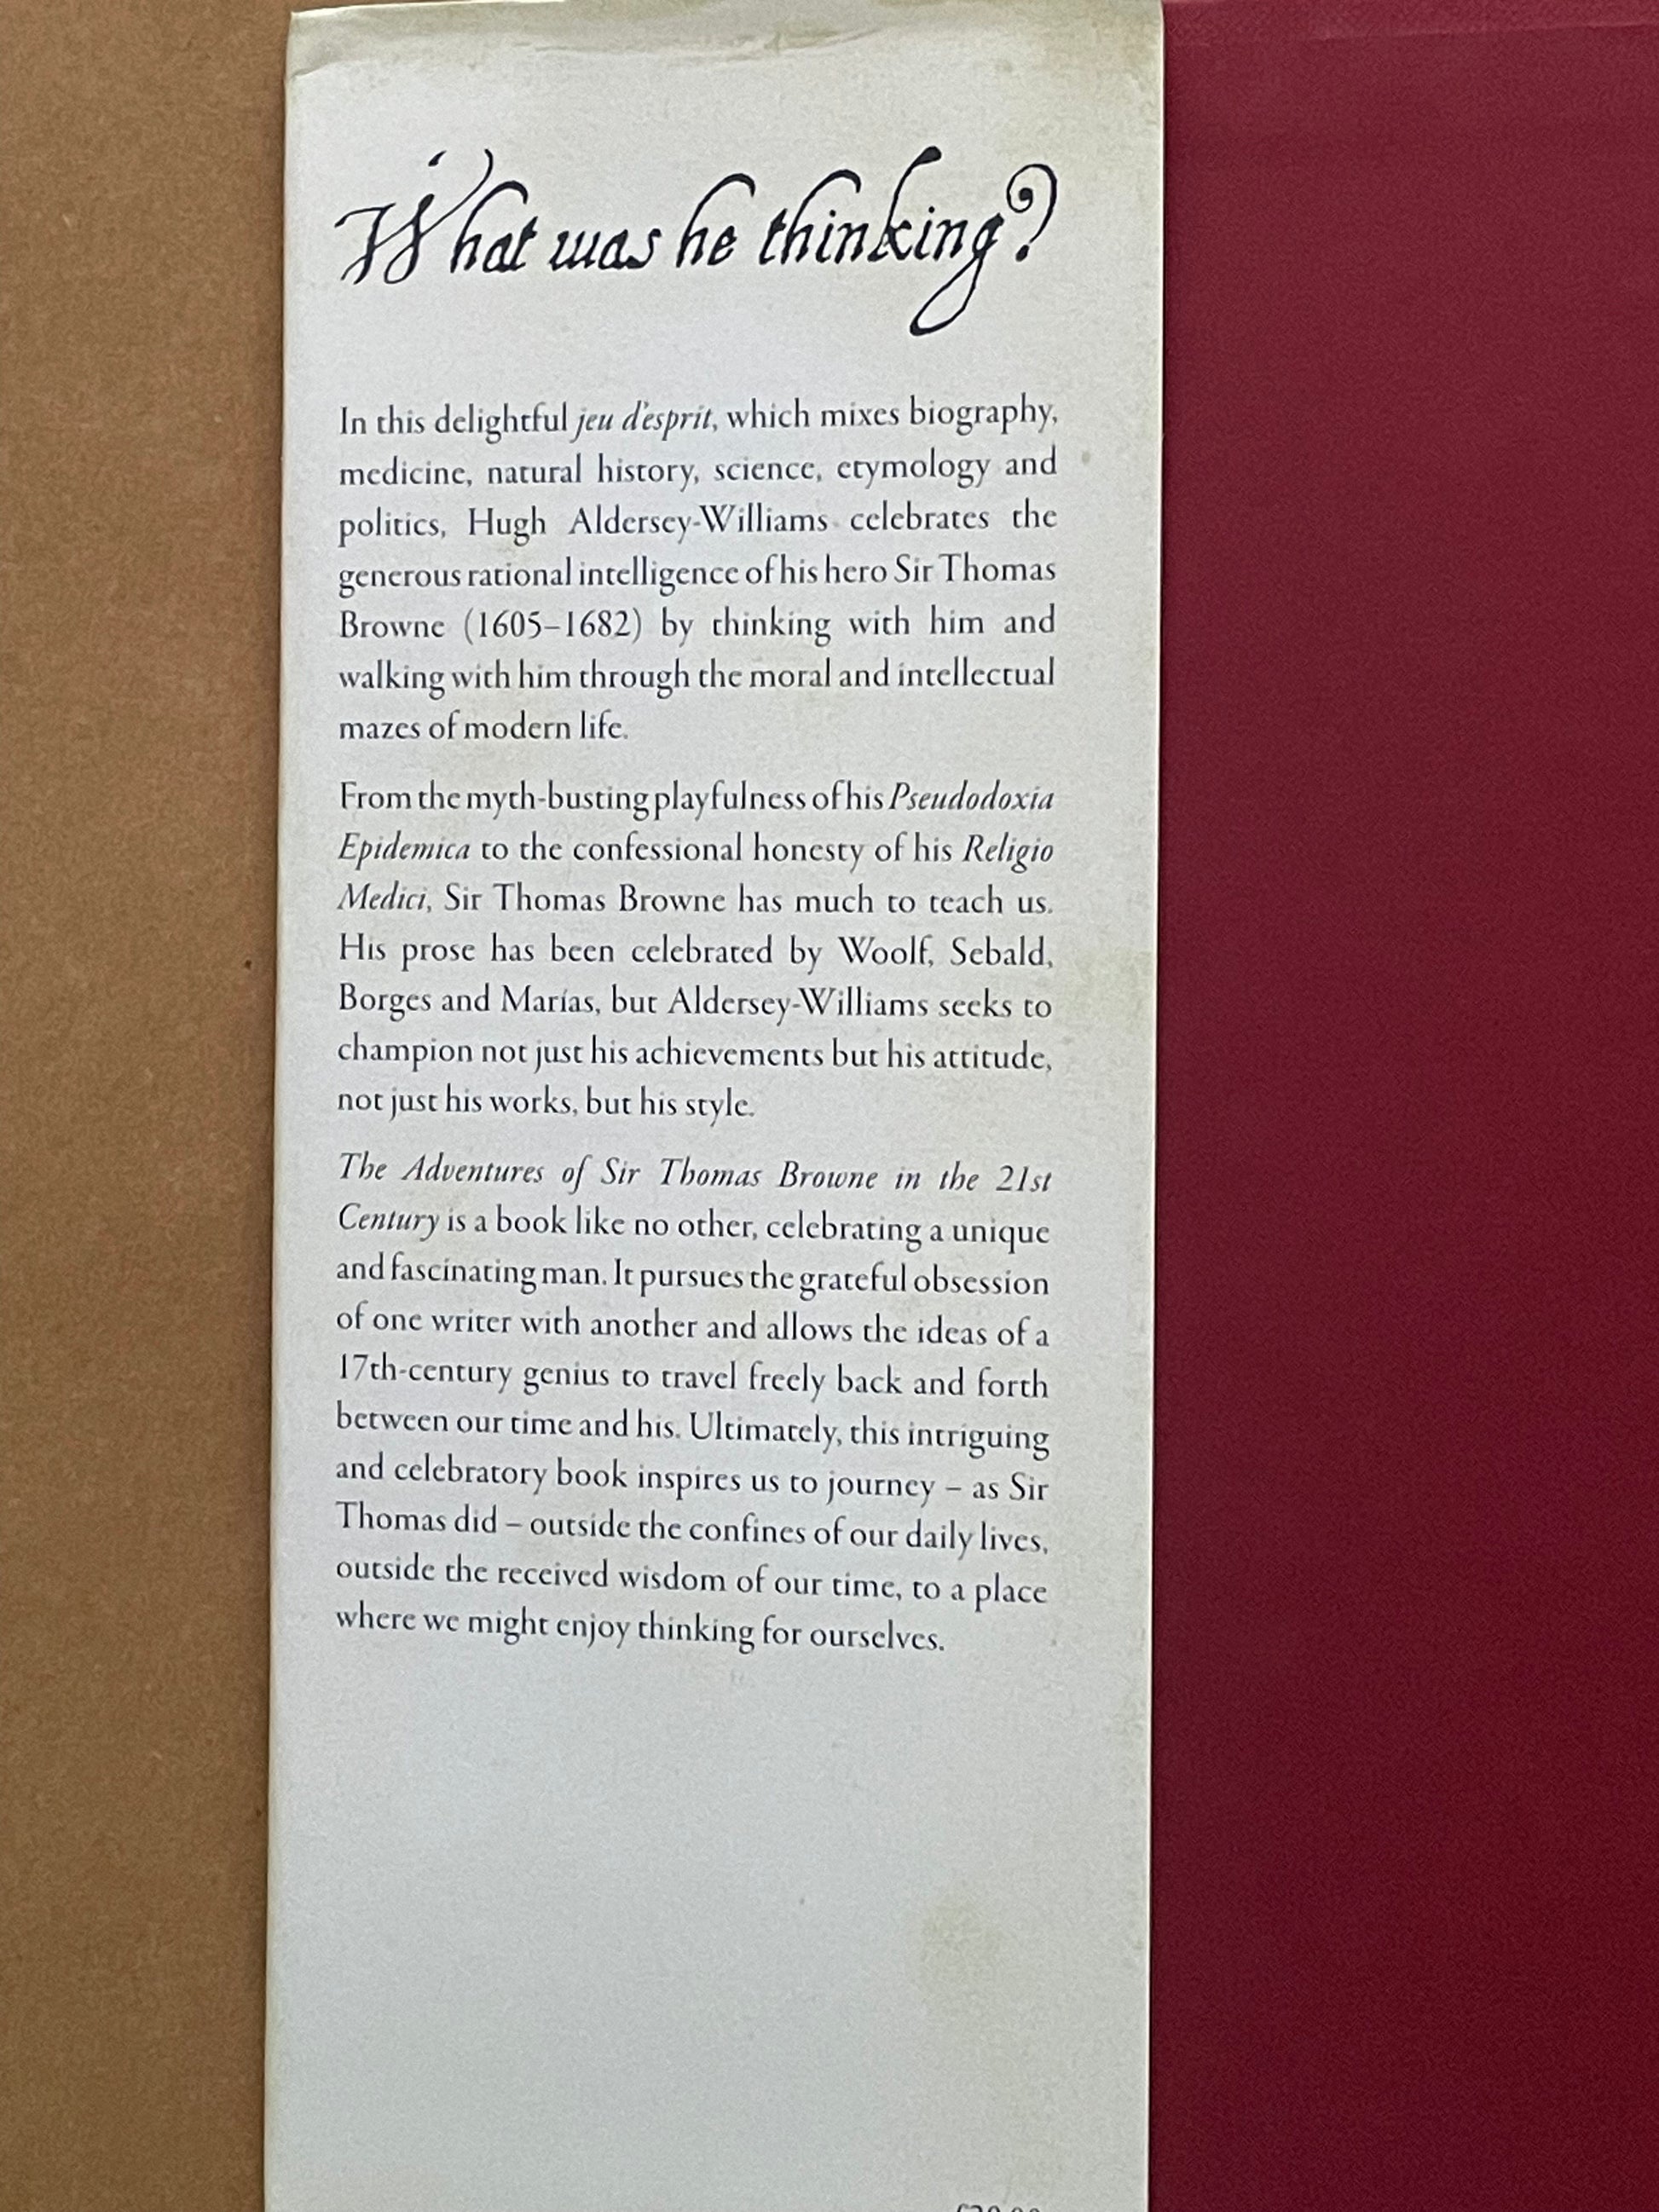 What was he thinking?
In this delightful jeu d'esprit, which mixes biography,
medicine, natural history, science, etymology and
politics, Hugh Aldersey-Williams celebrates the
generous rational intelligence of his hero Sir Thomas
Browne (1605–1682) by thinking with him and
walking with him through the moral and intellectual
mazes of modern life.
From the myth-busting playfulness of his Pseudodoxia
Epidemica to the confessional honesty of his Religio
Medici, Sir Thomas Browne has much to teach us.
His prose has been celebrated by Woolf, Sebald,
Borges and Marías, but Aldersey-Williams seeks to
champion not just his achievements but his attitude,
not just his works, but his style.
The Adventures of Sir Thomas Browne in the 21st
Century is a book like no other, celebrating a unique
and fascinating man. It pursues the grateful obsession
of one writer with another and allows the ideas of a
17th-century genius to travel freely back and forth
between our time and his. Ultimately, this intriguing
and celebratory book inspires us to journey – as Sir
Thomas did – outside the confines of our daily lives,
outside the received wisdom of our time, to a place
where we might enjoy thinking for ourselves.